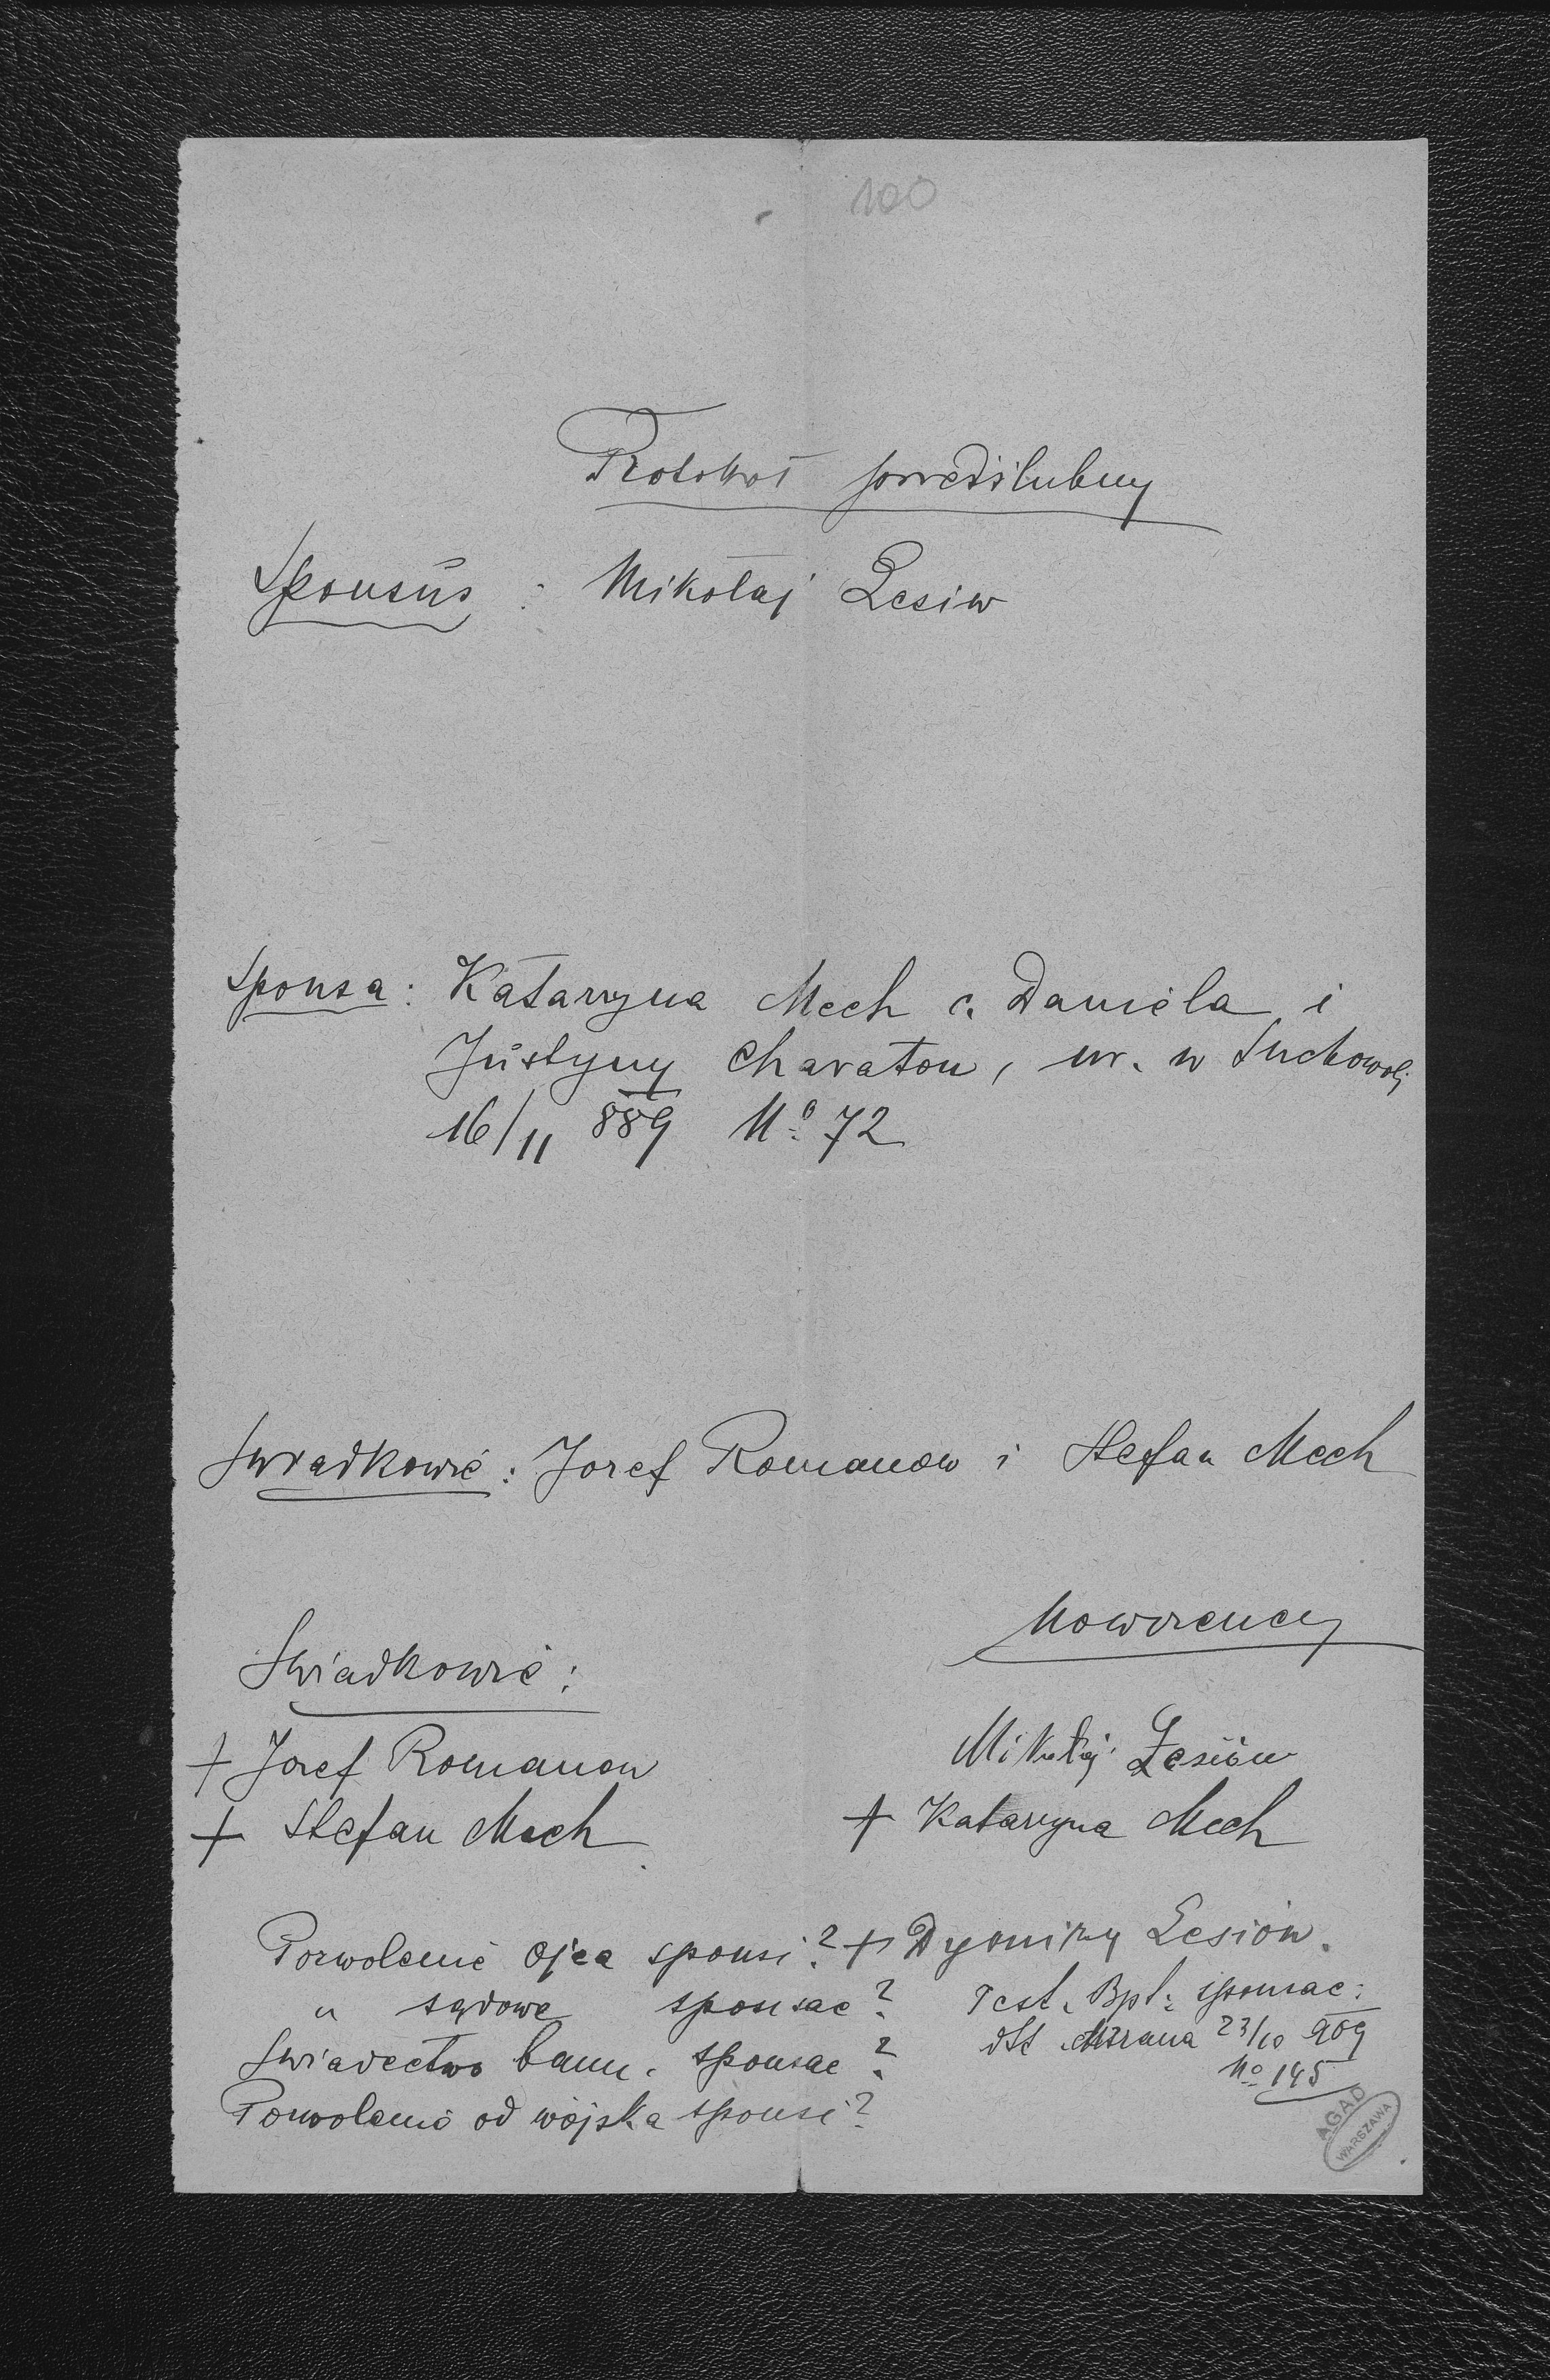 100
Protokoł przedślubny
Sponsus : Mikołaj Lesiw
Sponsa: Katarzyna Mech c. Daniela i
Justyny Charaton, ur. w Suchowoli
16/11 889 No 72
Świadkowie: Jozef Romanow i Stefan Mech
Nowożency
Świadkowie:
+ Jozef Romanow
Mikołaj Lesiów
+ Stefan Mech
+ Katarzyna Mech
Pozwolenie ojca sponsi? + Dyonizy Lesiów.
" sądowe sponsae? Test. Bpt. sponsae:
Świadectwo bann. sponsae? dtt 23/10 909
No 145
Pozwolenie od wojska sponsi?
AGAD
WARSZAWA